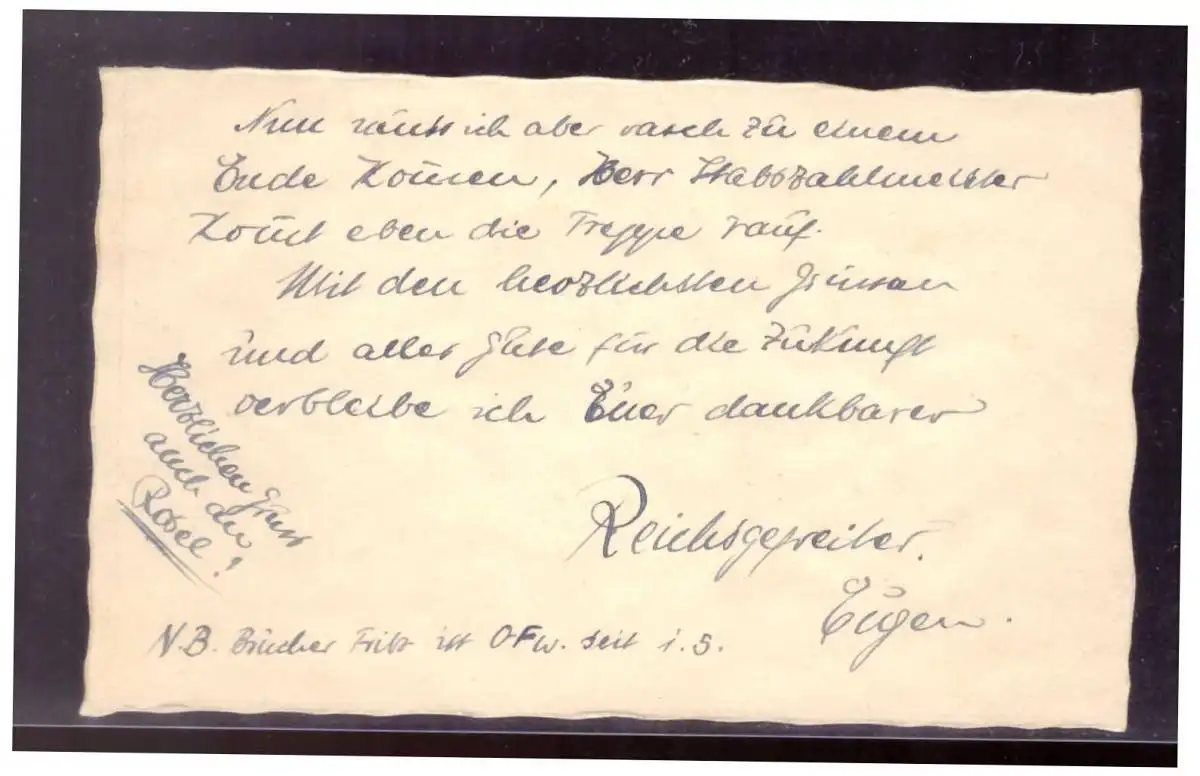 Nun muss ich aber rasch zu einem
Ende kom̄en, Herr Stabszahlmeister
kom̄t eben die Treppe rauf.
Mit den herzlichsten Grüssen
und alles Gute für die Zukunft
verbleibe ich Euer dankbarer
Reichsgefreiter.
Eugen.
Herzlichen Gruss
auch an
Rosel!
N.B. Bruder Fritz ist OFw. seit 1.5.